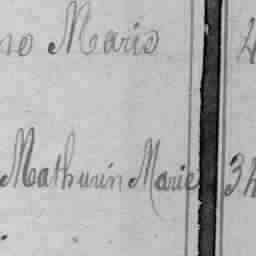 Marie 4
Mathurin Marie 34